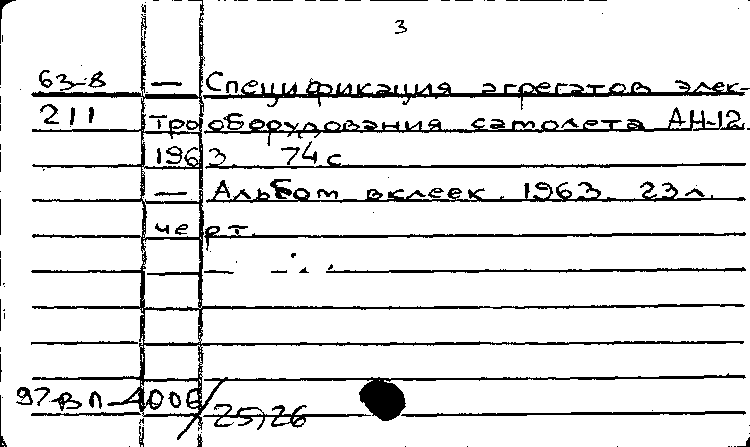 3
63-8 — Спецификация агрегатов элек-
211 трооборудования самолета АН-12.
1963. 74 с
— Альбом вклеек. 1963. 23 л.
черт.
97-ВП-4006/25,26